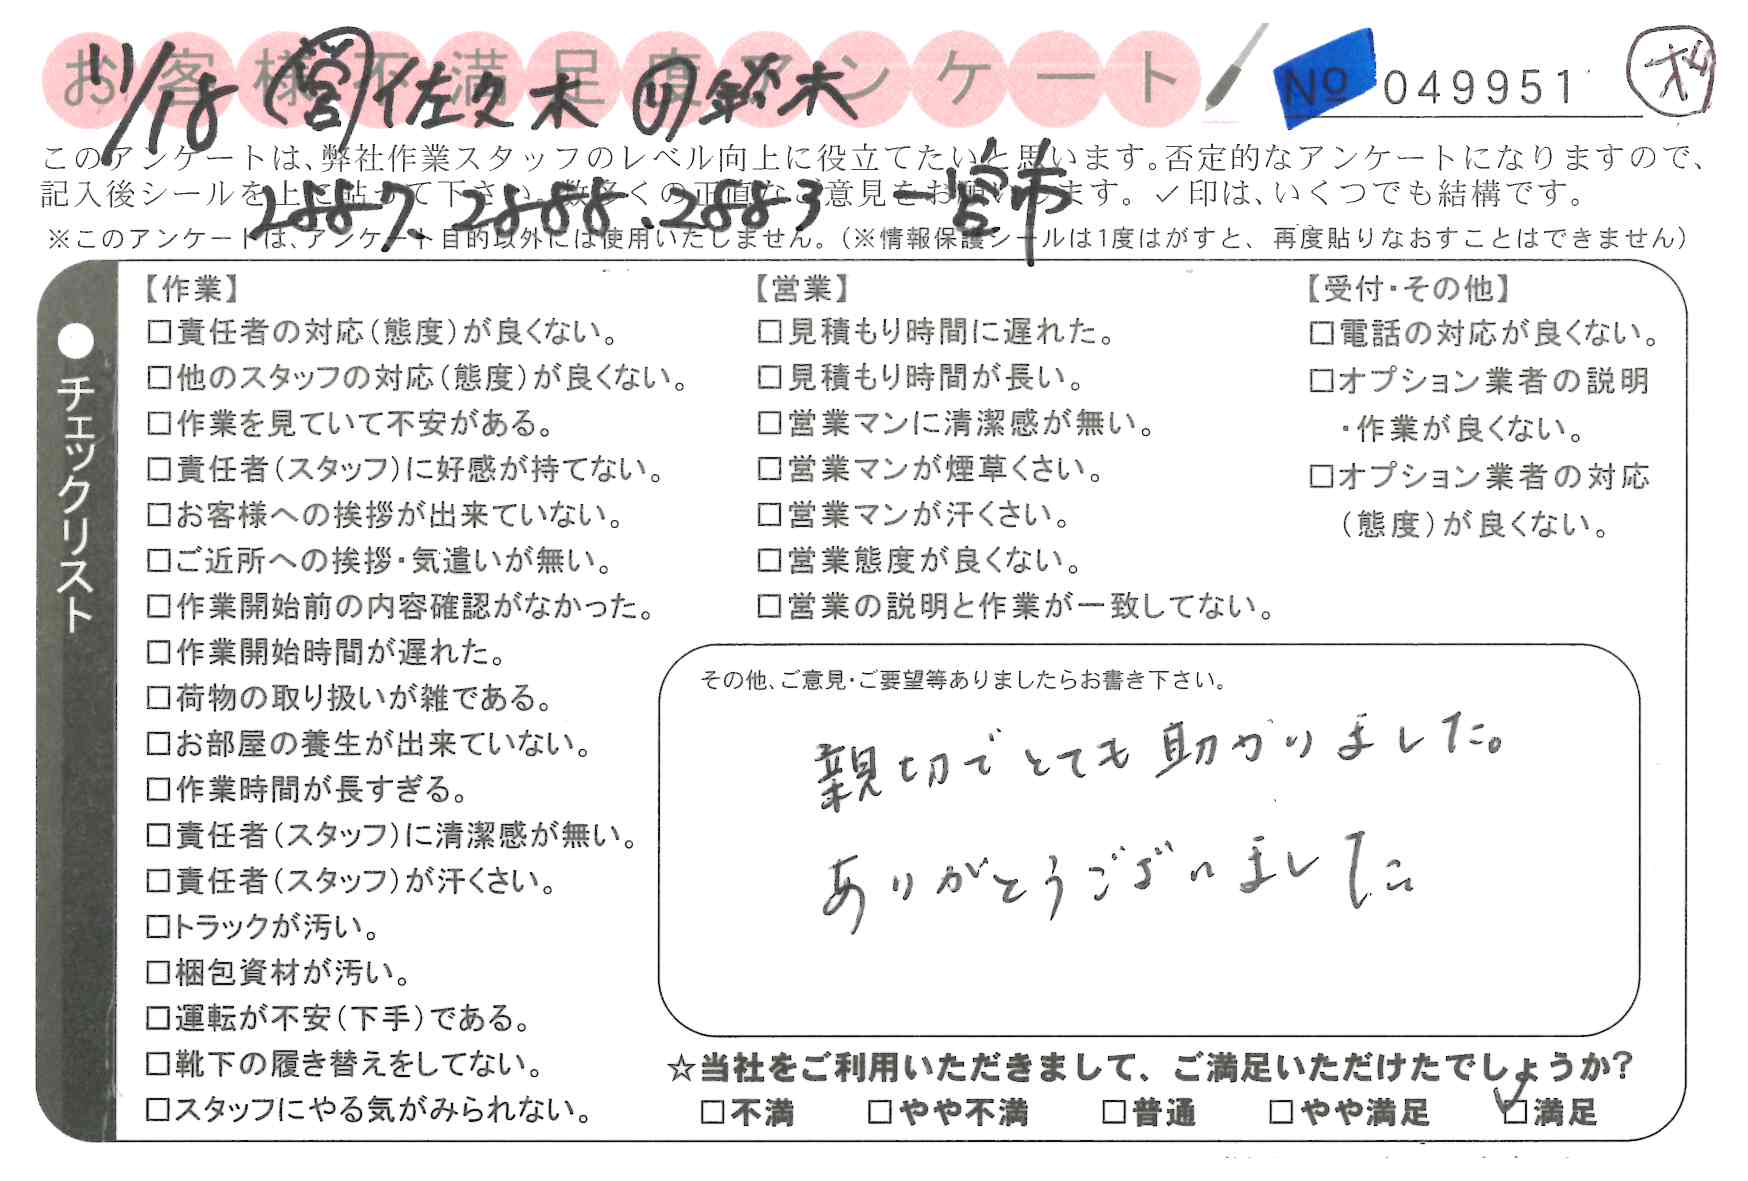 お客様不満足度アンケート
№ 049951
11/18 ㊂佐久木 鈴木
このアンケートは、弊社作業スタッフのレベル向上に役立てたいと思います。否定的なアンケートになりますので、
記入後シールを上に貼って下さい。数多くの正直なご意見をお願いします。✓印は、いくつでも結構です。
2887、2888.2883 一宮市
※このアンケートは、アンケート目的以外には使用いたしません。(※情報保護シールは1度はがすと、再度貼りなおすことはできません)
●チェックリスト
【作業】
□責任者の対応(態度)が良くない。
□他のスタッフの対応(態度)が良くない。
□作業を見ていて不安がある。
□責任者(スタッフ)に好感が持てない。
□お客様への挨拶が出来ていない。
□ご近所への挨拶・気遣いが無い。
□作業開始前の内容確認がなかった。
□作業開始時間が遅れた。
□荷物の取り扱いが雑である。
□お部屋の養生が出来ていない。
□作業時間が長すぎる。
□責任者(スタッフ)に清潔感が無い。
□責任者(スタッフ)が汗くさい。
□トラックが汚い。
□梱包資材が汚い。
□運転が不安(下手)である。
□靴下の履き替えをしてない。
□スタッフにやる気がみられない。
【営業】
□見積もり時間に遅れた。
□見積もり時間が長い。
□営業マンに清潔感が無い。
□営業マンが煙草くさい。
□営業マンが汗くさい。
□営業態度が良くない。
□営業の説明と作業が一致してない。
【受付・その他】
□電話の対応が良くない。
□オプション業者の説明
・作業が良くない。
□オプション業者の対応
(態度)が良くない。
その他、ご意見・ご要望等ありましたらお書き下さい。
親切でとても助かりました。
ありがとうございました
☆当社をご利用いただきまして、ご満足いただけたでしょうか?
□不満 □やや不満 □普通 □やや満足 ☑満足